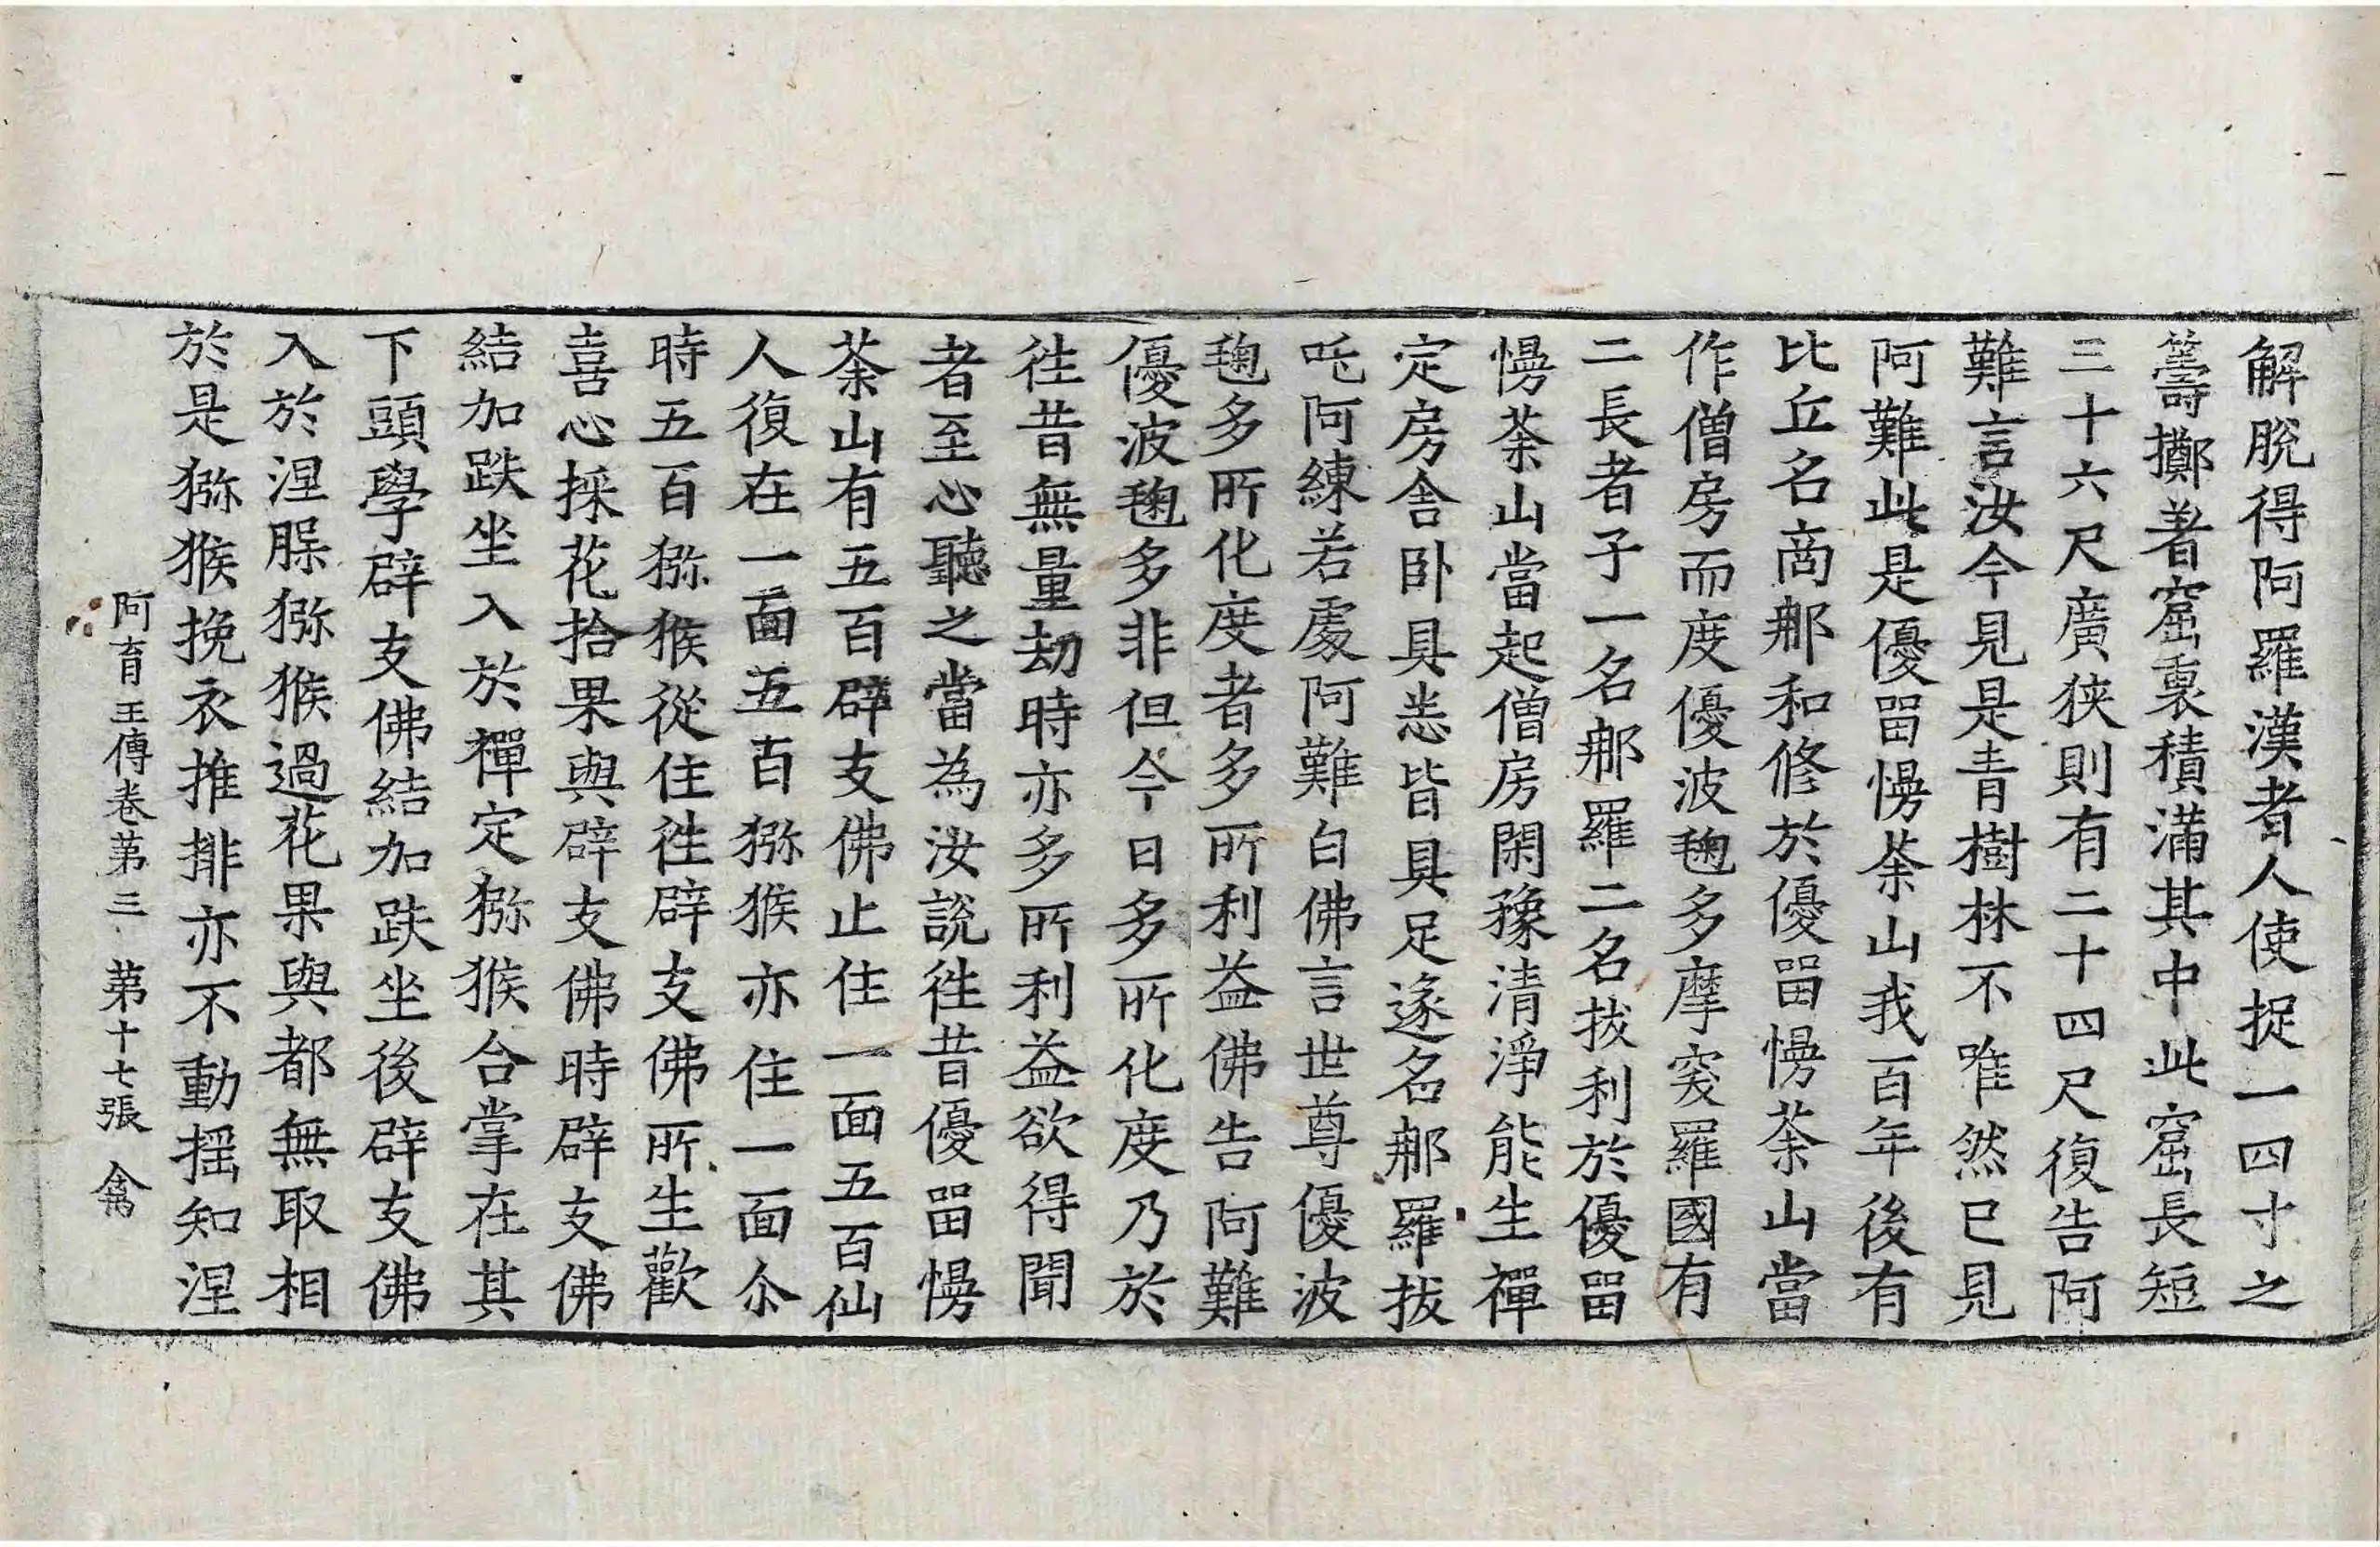 解脫得阿羅漢者人使捉一四寸之
籌擲著窟裏積滿其中此窟長短
三十六尺廣狹則有二十四尺復告阿
難言汝今見是青樹林不唯然已見
阿難此是優留慢荼山我百年後有
比丘名商那和修於優留慢荼山當
作僧房而度優波毱多摩突羅國有
二長者子一名那羅二名拔利於優留
慢荼山當起僧房閑豫清淨能生禪
定房舍卧具恙皆具足遂名那羅拔
吒阿練若處阿難白佛言世尊優波
毱多所化度者多所利益佛告阿難
優波毱多非但今日多所化度乃於
徃昔無量劫時亦多所利益欲得聞
者至心聽之當為汝說徃昔優留慢
荼山有五百辟支佛止住一面五百仙
人復在一面五百猕猴亦住一面尒
時五百猕猴從住徃辟支佛所生歡
喜心採花拾果與辟支佛時辟支佛
結加趺坐入於禪定猕猴合掌在其
下頭學辟支佛結加趺坐後辟支佛
入於涅槃猕猴過花果與都無取相
於是猕猴挽衣推排亦不動摇知涅
阿育王傳卷第三 第十七張 禽